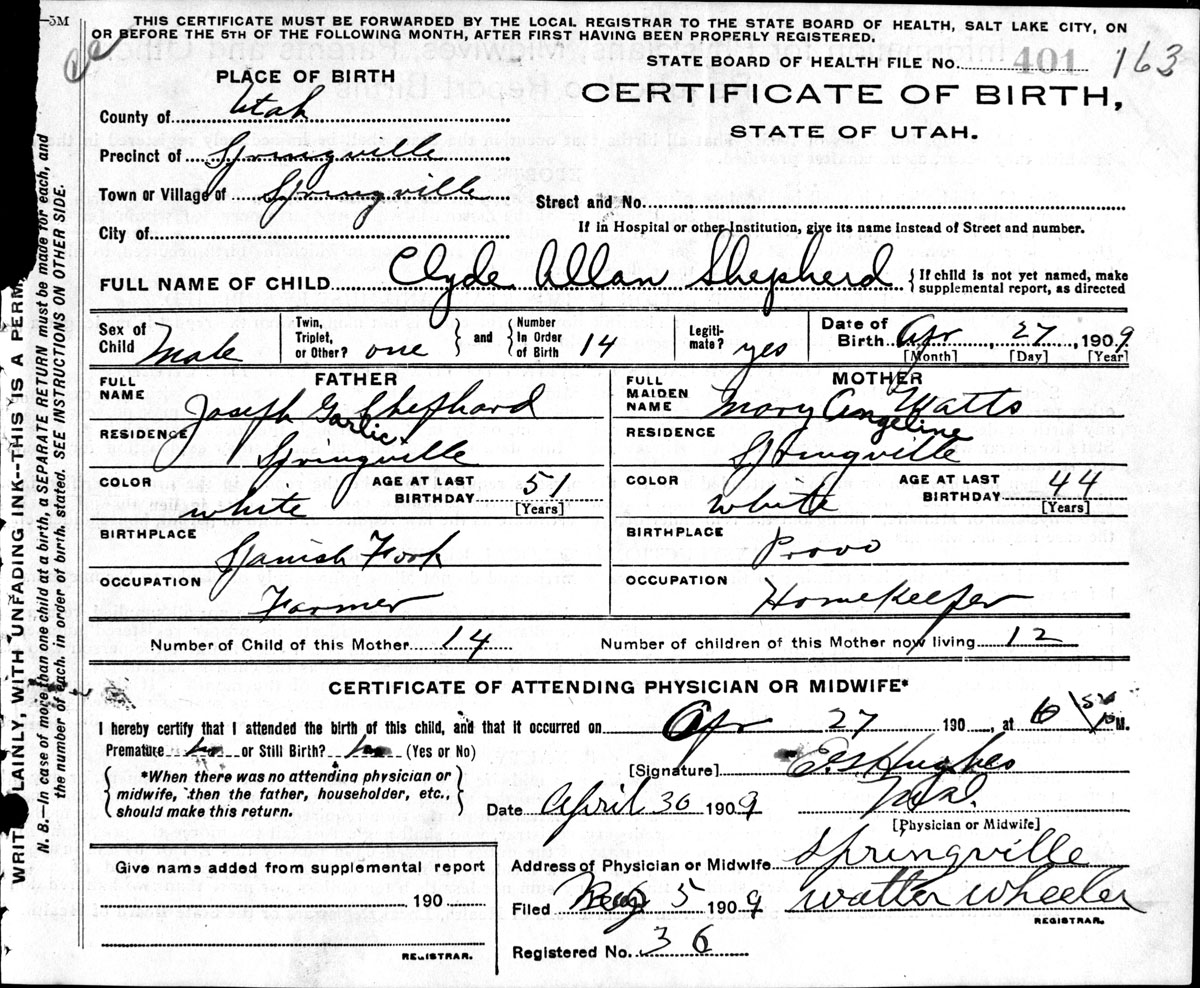 —5M THIS CERTIFICATE MUST BE FORWARDED BY THE LOCAL REGISTRAR TO THE STATE BOARD OF HEALTH, SALT LAKE CITY, ON
OR BEFORE THE 5TH OF THE FOLLOWING MONTH, AFTER FIRST HAVING BEEN PROPERLY REGISTERED.
STATE BOARD OF HEALTH FILE No. 401 163
PLACE OF BIRTH
CERTIFICATE OF BIRTH,
STATE OF UTAH.
County of Utah
Precinct of Springville
Town or Village of Springville
Street and No.
City of
If in Hospital or other Institution, give its name instead of Street and number.
FULL NAME OF CHILD Clyde Allan Shepherd { If child is not yet named, make
supplemental report, as directed
Sex of Child Male
Twin, Triplet, or Other? one } and { Number In Order of Birth 14
Legitimate? yes
Date of Birth Apr 27, 1909
[Month] [Day] [Year]
FATHER
FULL NAME Joseph Garlic Shephard
RESIDENCE Springville
COLOR white
AGE AT LAST BIRTHDAY 51
[Years]
BIRTHPLACE Spanish Fork
OCCUPATION Farmer
MOTHER
FULL MAIDEN NAME Mary Angeline Watts
RESIDENCE Springville
COLOR white
AGE AT LAST BIRTHDAY 44
[Years]
BIRTHPLACE Provo
OCCUPATION Homekeeper
Number of Child of this Mother 14 Number of children of this Mother now living 12
CERTIFICATE OF ATTENDING PHYSICIAN OR MIDWIFE*
I hereby certify that I attended the birth of this child, and that it occurred on Apr 27 190 , at 6 M.
Premature no or Still Birth? no (Yes or No)
[Signature] E. Hughes
{ *When there was no attending physician or
midwife, then the father, householder, etc.,
should make this return. }
Date April 30 1909
[Physician or Midwife]
Give name added from supplemental report
190
REGISTRAR.
Address of Physician or Midwife Springville
Filed 5 1909 Walter Wheeler
REGISTRAR.
Registered No. 36
WRIT LAINLY, WITH UNFADING INK--THIS IS A PERM
N. B.—In case of more than one child at a birth, a SEPARATE RETURN must be made for each, and
the number of each, in order of birth, stated. SEE INSTRUCTIONS ON OTHER SIDE.